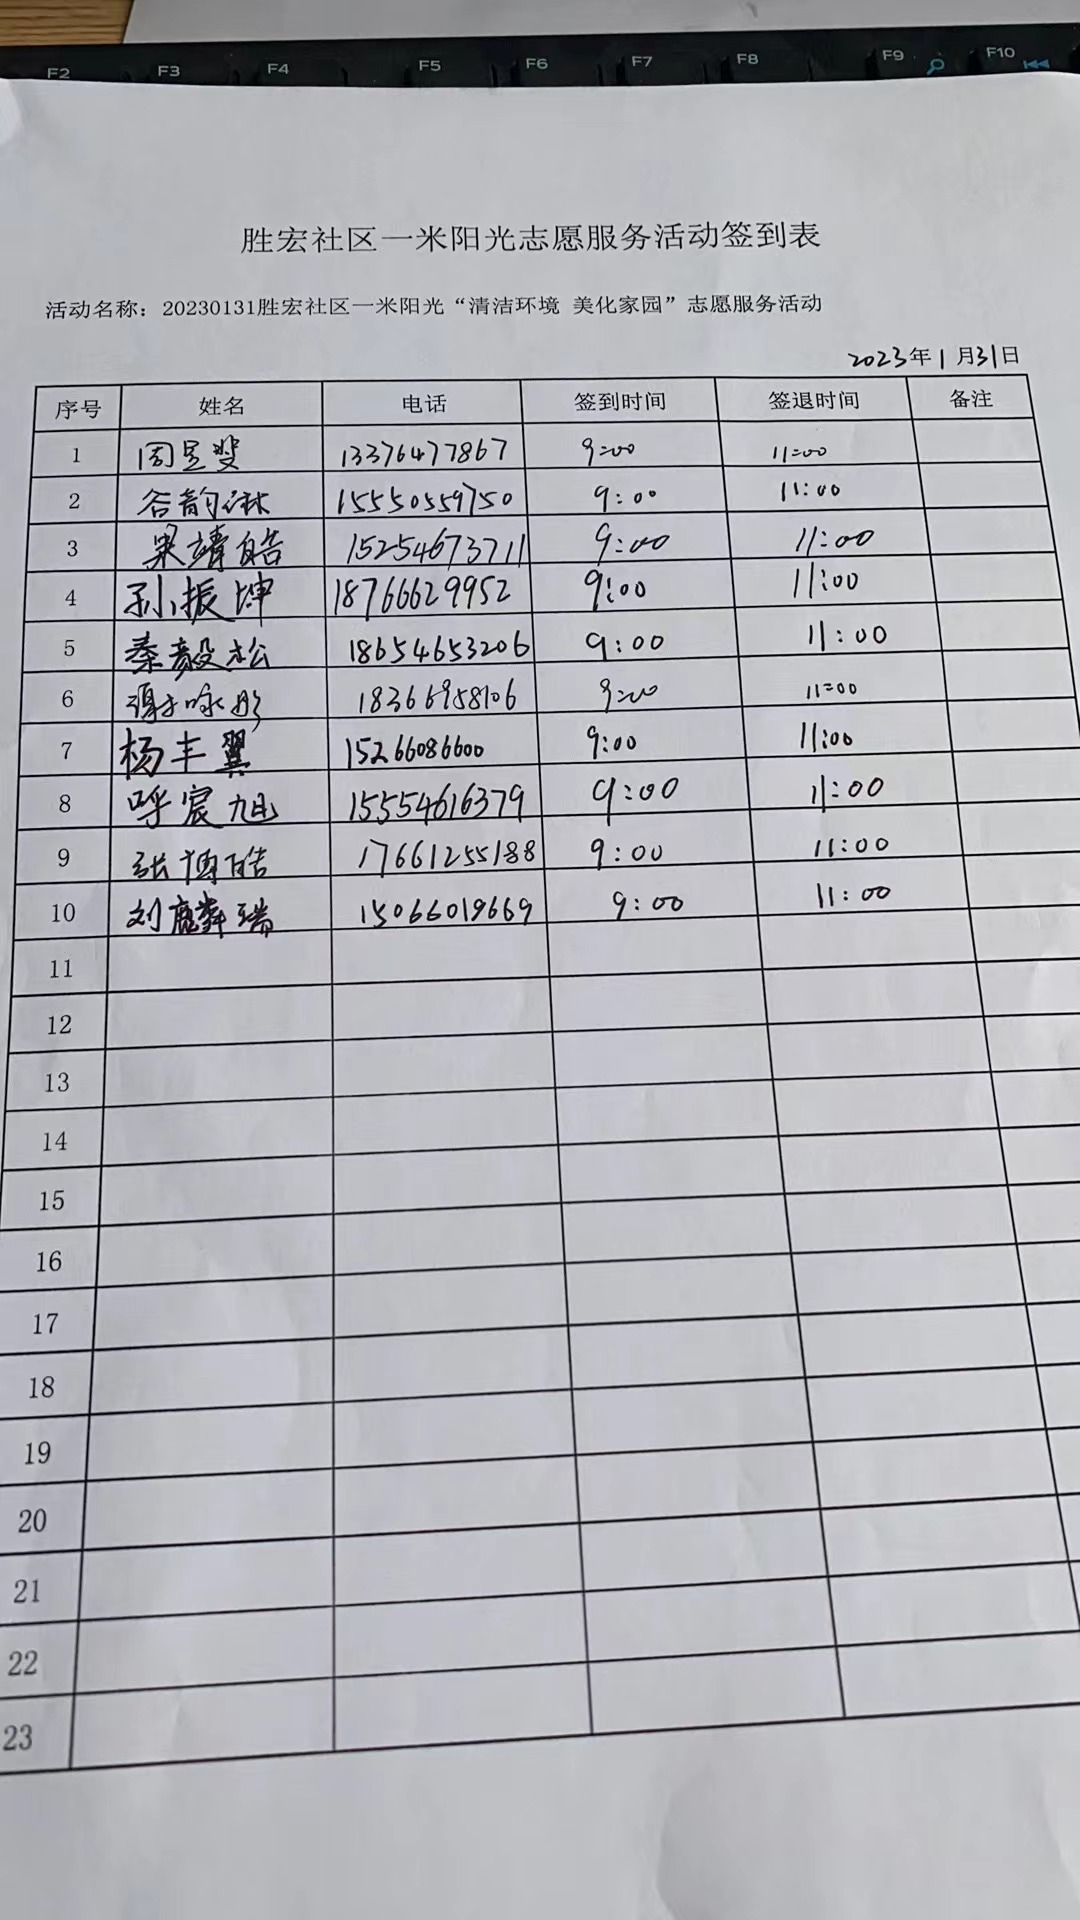 F2 F3 F4 F5 F6 F7 F8 F9 F10
胜宏社区一米阳光志愿服务活动签到表
活动名称：20230131胜宏社区一米阳光“清洁环境 美化家园”志愿服务活动
2023年1月31日
序号 姓名 电话 签到时间 签退时间 备注
1 周昱斐 13376477867 9:00 11:00
2 谷韵淋 15550559750 9:00 11:00
3 靖皓 15254673711 9:00 11:00
4 孙振坤 18766629952 9:00 11:00
5 秦毅松 18654653206 9:00 11:00
6 咏彤 18366958106 9:00 11:00
7 杨丰翼 15266086600 9:00 11:00
8 呼宸旭 15554616379 9:00 11:00
9 张博皓 17661255188 9:00 11:00
10 刘麒瑞 15066019669 9:00 11:00
11
12
13
14
15
16
17
18
19
20
21
22
23